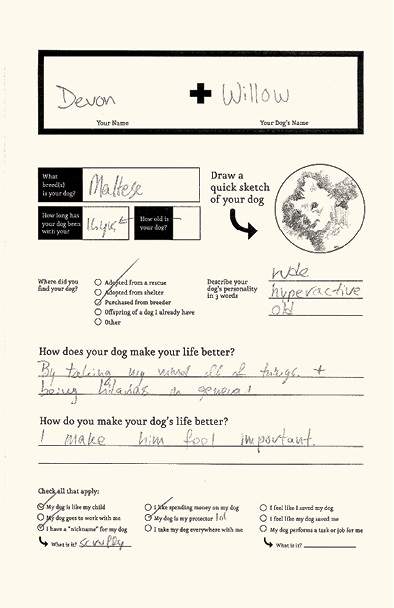 Devon + Willow
Your Name Your Dog's Name
What breed(s) is your dog? Maltese
Draw a quick sketch of your dog
How long has your dog been with you? 16 yrs
How old is your dog?
Where did you find your dog?
Adopted from a rescue
Adopted from shelter
Purchased from breeder
Offspring of a dog I already have
Other
Describe your dog's personality in 3 words
rude
hyperactive
old
How does your dog make your life better?
By taking my mind off of things +
being hilarious in general
How do you make your dog's life better?
I make him feel important.
Check all that apply:
My dog is like my child
My dog goes to work with me
I have a "nickname" for my dog
What is it? scruffy
I like spending money on my dog
My dog is my protector lol
I take my dog everywhere with me
I feel like I saved my dog
I feel like my dog saved me
My dog performs a task or job for me
What is it?